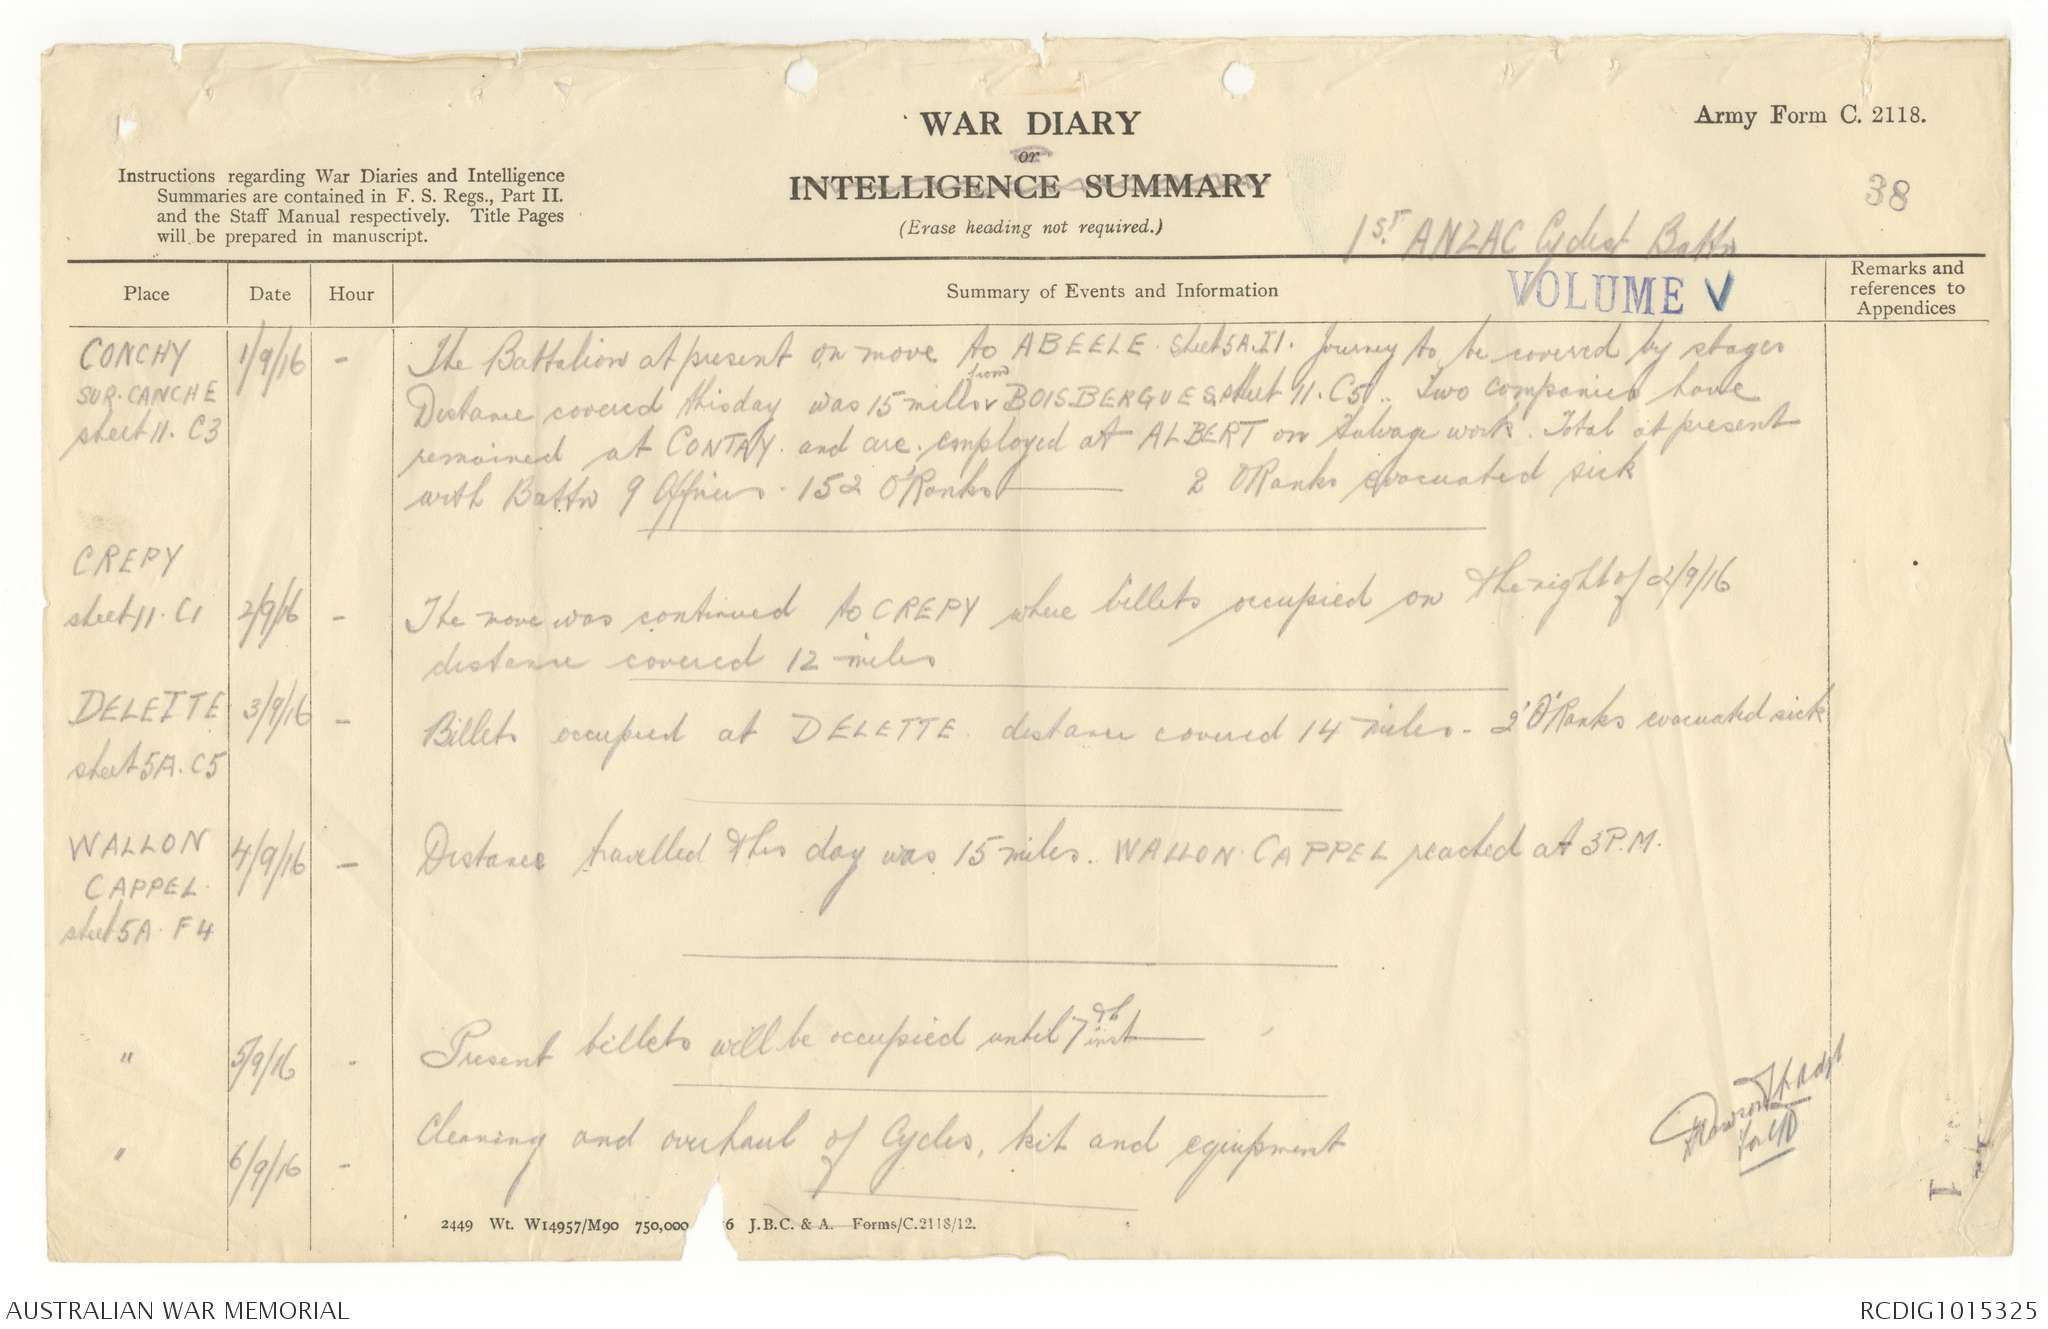 WAR DIARY
or
INTELLIGENCE SUMMARY
(Erase heading not required.)
Army Form C. 2118.
Instructions regarding War Diaries and Intelligence
Summaries are contained in F. S. Regs., Part II.
and the Staff Manual respectively. Title Pages
will be prepared in manuscript.
38
1ST ANZAC Cyclist Battn
VOLUME V
Place Date Hour Summary of Events and Information Remarks and references to Appendices
CONCHY 1/9/16 - The Battalion at present on move to ABEELE. Sheet 5A.I1. Journey to be covered by stages
SUR.CANCHE Distance covered this day was 15 miles from BOISBERGUES sheet 11. C5. Two companies have
sheet 11. C3 remained at CONTAY. and are employed at ALBERT on Salvage work. Total at present
with Battn 9 Officers. 152 O'Ranks 2 O'Ranks evacuated sick
CREPY
sheet 11. C1 2/9/16 - The move was continued to CREPY where billets occupied on the night of 2/9/16
distance covered 12 miles
DELETTE 3/9/16 - Billets occupied at DELETTE. distance covered 14 miles - 2 O'Ranks evacuated sick
sheet 5A. C5
WALLON 4/9/16 - Distance travelled this day was 15 miles. WALLON. CAPPEL reached at 3P.M.
CAPPEL.
sheet 5A. F4
" 5/9/16 - Present billets will be occupied until 7th inst
" 6/9/16 - Cleaning and overhaul of Cycles, kit and equipment
Lt. Adjt
for CO
2449 Wt. W14957/M90 750,000 6 J.B.C. & A. Forms/C.2118/12.
AUSTRALIAN WAR MEMORIAL
RCDIG1015325